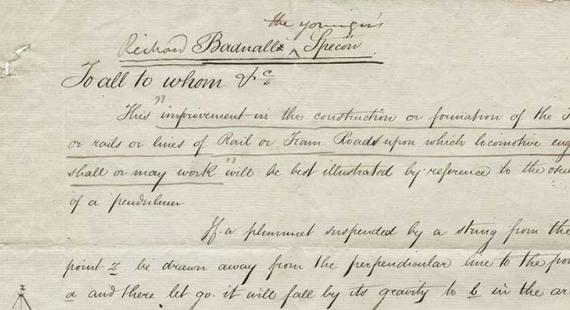 the younger's
Richard Badnalls ^ Specon
To all to whom &c
This "improvement in the construction or formation of the
or rails or lines of Rail or Tram Roads upon which locomotive eng
shall or may work" will be best illustrated by reference to the osc
of a pendulum
If a plummet suspended by a string from the
point z be drawn away from the perpendicular line to the po
a and there let go it will fall by its gravity to b in the ar